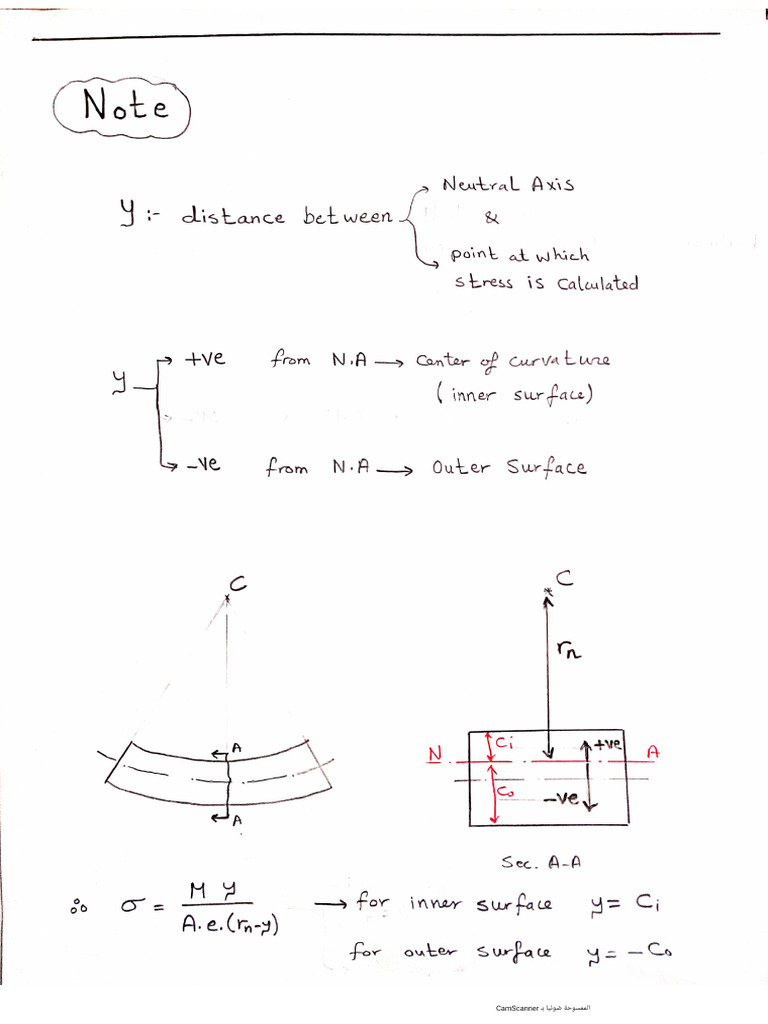 Note
Neutral Axis
y :- distance between
&
point at which
stress is calculated
+ve from N.A → center of curvature
y
(inner surface)
-ve from N.A → outer surface
C
C
rn
A
A
Ci
+ve
N
A
Co
-ve
Sec. A-A
∴ σ = M y / A.e.(rn-y) → for inner surface y = Ci
for outer surface y = -Co
CamScanner الممسوحة ضوئيا بـ